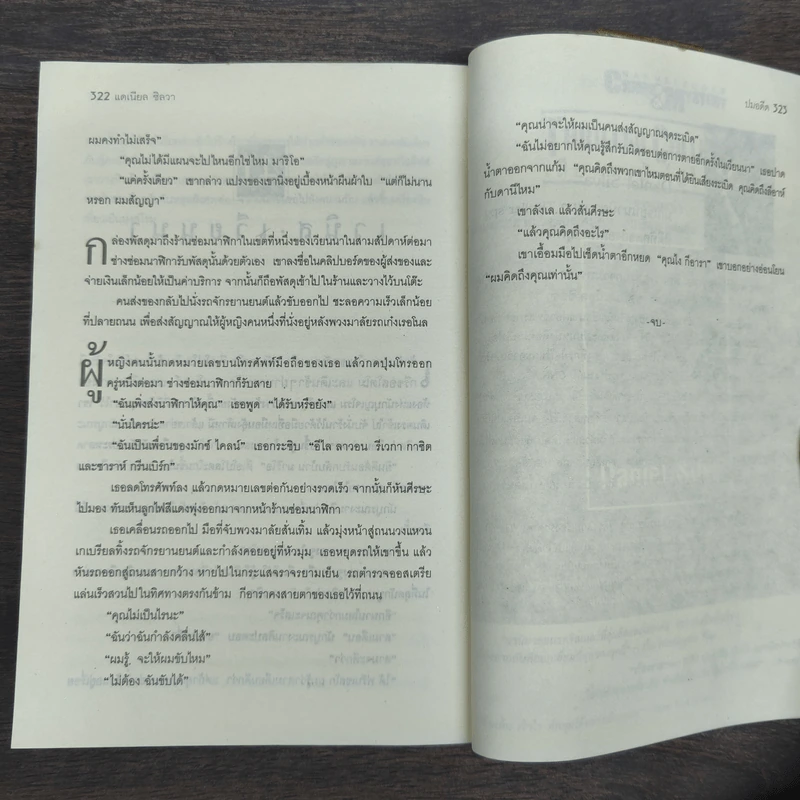 322 แดเนียล ซิลวา
ผมคงทำไม่เสร็จ”
“คุณไม่ได้มีแผนจะไปไหนอีกใช่ไหม มาริโอ”
“แค่ครั้งเดียว” เขากล่าว แปรงของเขานิ่งอยู่เบื้องหน้าผืนผ้าใบ “แต่ก็ไม่นาน
หรอก ผมสัญญา”
กล่องพัสดุมาถึงร้านซ่อมนาฬิกาในเขตที่หนึ่งของเวียนนาในสามสัปดาห์ต่อมา
ช่างซ่อมนาฬิการับพัสดุนั้นด้วยตัวเอง เขาลงชื่อในคลิปบอร์ดของผู้ส่งของและ
จ่ายเงินเล็กน้อยให้เป็นค่าบริการ จากนั้นก็ถือพัสดุเข้าไปในร้านและวางไว้บนโต๊ะ
คนส่งของกลับไปนั่งรถจักรยานยนต์แล้วขับออกไป ชะลอความเร็วเล็กน้อย
ที่ปลายถนน เพื่อส่งสัญญาณให้ผู้หญิงคนหนึ่งที่นั่งอยู่หลังพวงมาลัยรถเก๋งเรอโนล
ผู้หญิงคนนั้นกดหมายเลขบนโทรศัพท์มือถือของเธอ แล้วกดปุ่มโทรออก
ครู่หนึ่งต่อมา ช่างซ่อมนาฬิกาก็รับสาย
“ฉันเพิ่งส่งนาฬิกาให้คุณ” เธอพูด “ได้รับหรือยัง”
“นั่นใครน่ะ”
“ฉันเป็นเพื่อนของมักซ์ ไคลน์” เธอกระซิบ “อีไล ลาวอน รีเวกา กาซิต
และซาราห์ กรีนเบิร์ก”
เธอลดโทรศัพท์ลง แล้วกดหมายเลขต่อกันอย่างรวดเร็ว จากนั้นก็หันศีรษะ
ไปมอง ทันเห็นลูกไฟสีแดงพุ่งออกมาจากหน้าร้านซ่อมนาฬิกา
เธอเคลื่อนรถออกไป มือที่จับพวงมาลัยสั่นเทิ้ม แล้วมุ่งหน้าสู่ถนนวงแหวน
เกเบรียลทิ้งรถจักรยานยนต์และกำลังคอยอยู่ที่หัวมุม เธอหยุดรถให้เขาขึ้น แล้ว
หันรถออกสู่ถนนสายกว้าง หายไปในกระแสจราจรยามเย็น รถตำรวจออสเตรีย
แล่นเร็วสวนไปในทิศทางตรงกันข้าม กีอาราคงสายตาของเธอไว้ที่ถนน
“คุณไม่เป็นไรนะ”
“ฉันว่าฉันกำลังคลื่นไส้”
“ผมรู้ จะให้ผมขับไหม”
“ไม่ต้อง ฉันขับได้”
ปมอดีต 323
“คุณน่าจะให้ผมเป็นคนส่งสัญญาณจุดระเบิด”
“ฉันไม่อยากให้คุณรู้สึกรับผิดชอบต่อการตายอีกครั้งในเวียนนา” เธอปาด
น้ำตาออกจากแก้ม “คุณคิดถึงพวกเขาไหมตอนที่ได้ยินเสียงระเบิด คุณคิดถึงลีอาห์
กับดานีไหม”
เขาลังเล แล้วสั่นศีรษะ
“แล้วคุณคิดถึงอะไร”
เขาเอื้อมมือไปเช็ดน้ำตาอีกหยด “คุณไง กีอารา” เขาบอกอย่างอ่อนโยน
“ผมคิดถึงคุณเท่านั้น”
-จบ-